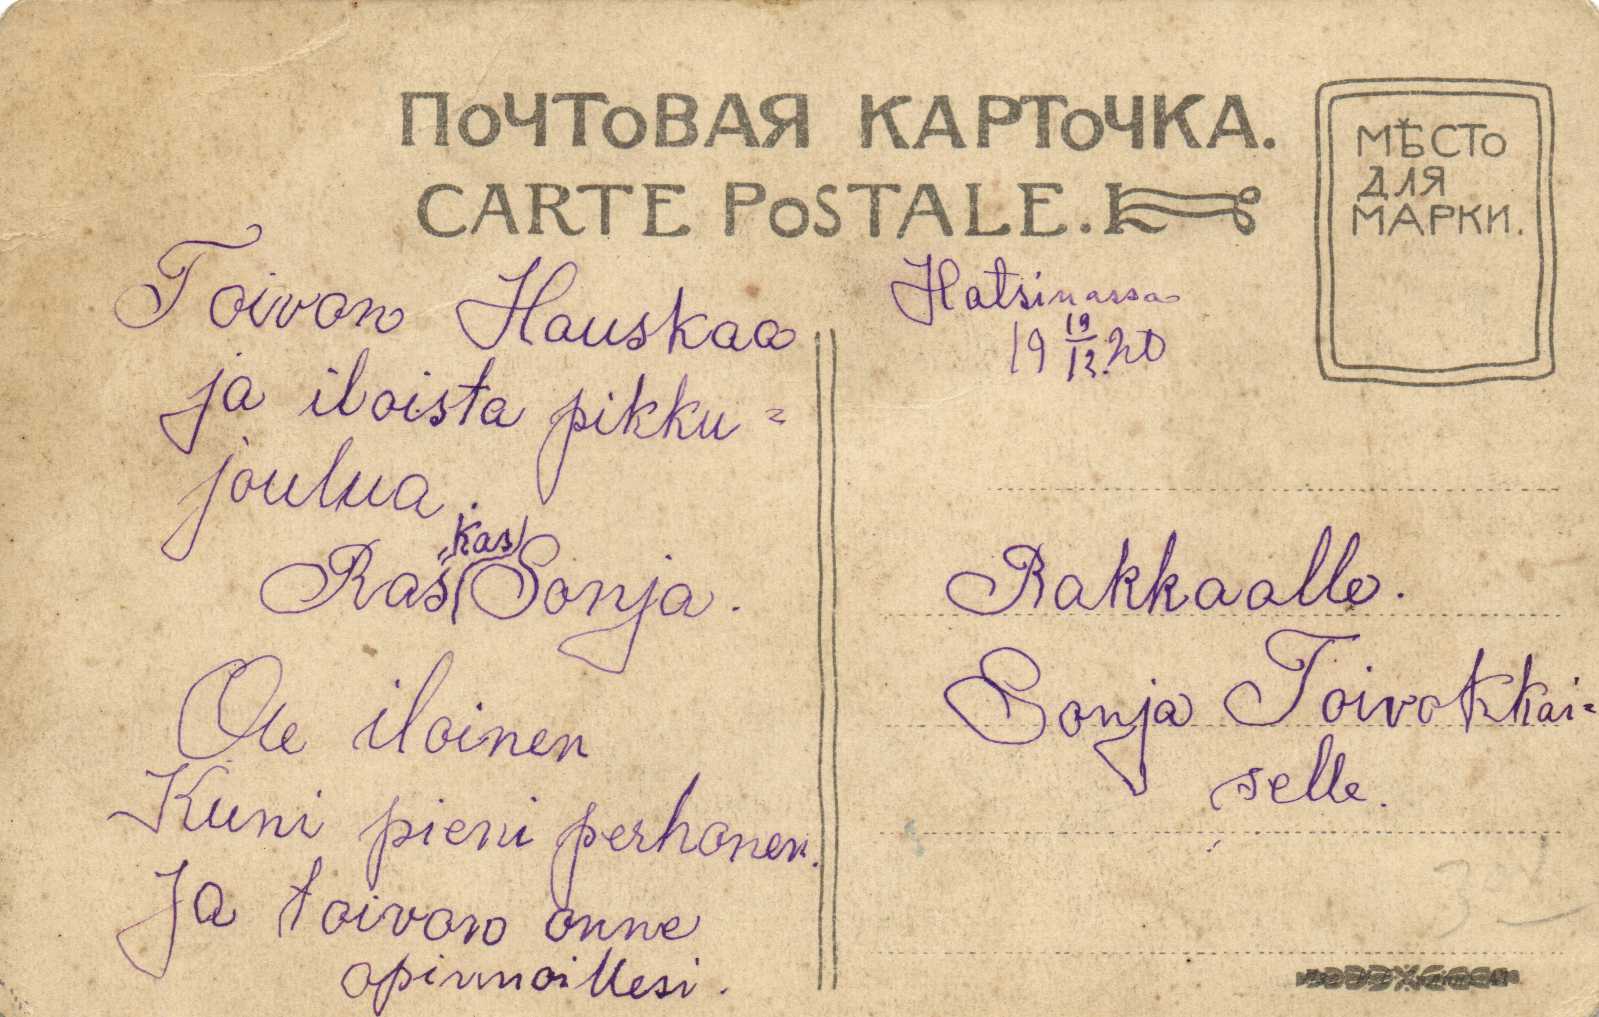 ПОЧТОВАЯ КАРТОЧКА.
CARTE POSTALE.
МѢСТО
ДЛЯ
МАРКИ.
Toivon Hauskaa
ja iloista pikku=
joulua.
kas
Ras Sonja.
Ole iloinen
Kuni pieni perhonen.
Ja toivon onne
opinnoillesi.
Hatsinassa
19 19/12 20
Rakkaalle.
Sonja Toivokkai=
selle.